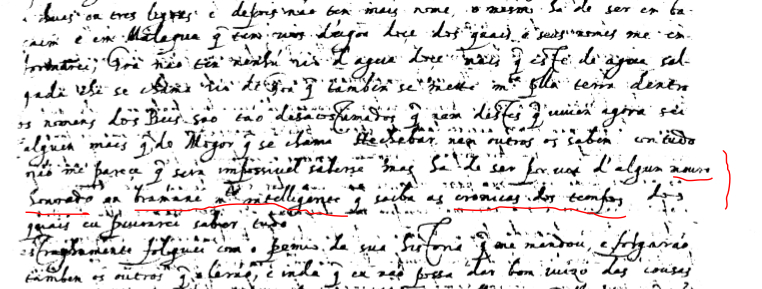 duas ou tres legoas e depois não tem mais nome, o mesmo ha de ser em ba-
e em Malaqua q̃ tem uns d'agoa doce dos quais e seus nomes me en-
formarei, Goa não tẽ nenhũ rio d'agoa doce mais q̃ este de agoa sal-
gada chi se chama rio de Goa q̃ tambem se mette mto polla terra dentro
os nomens dos Reis são tão desacostumados q̃ nem destes q̃ vivem agora sei
alguem mais q̃ do Mogor q̃ se chama Hechebar nem outros os sabem com tudo
não me parece q̃ sera impossivel saberse mas ha de ser por via d'algun mouro
honrado ou bramane mto intelligente q̃ saiba as cronicas dos tempos dos
quais eu procurarei saber tudo
estranhamente folguei com o pemio da sua historia q̃ me mandou, e folgarão
tambem os outros q̃ o lerão, e inda q̃ eu não possa dar bom juizo das cousas